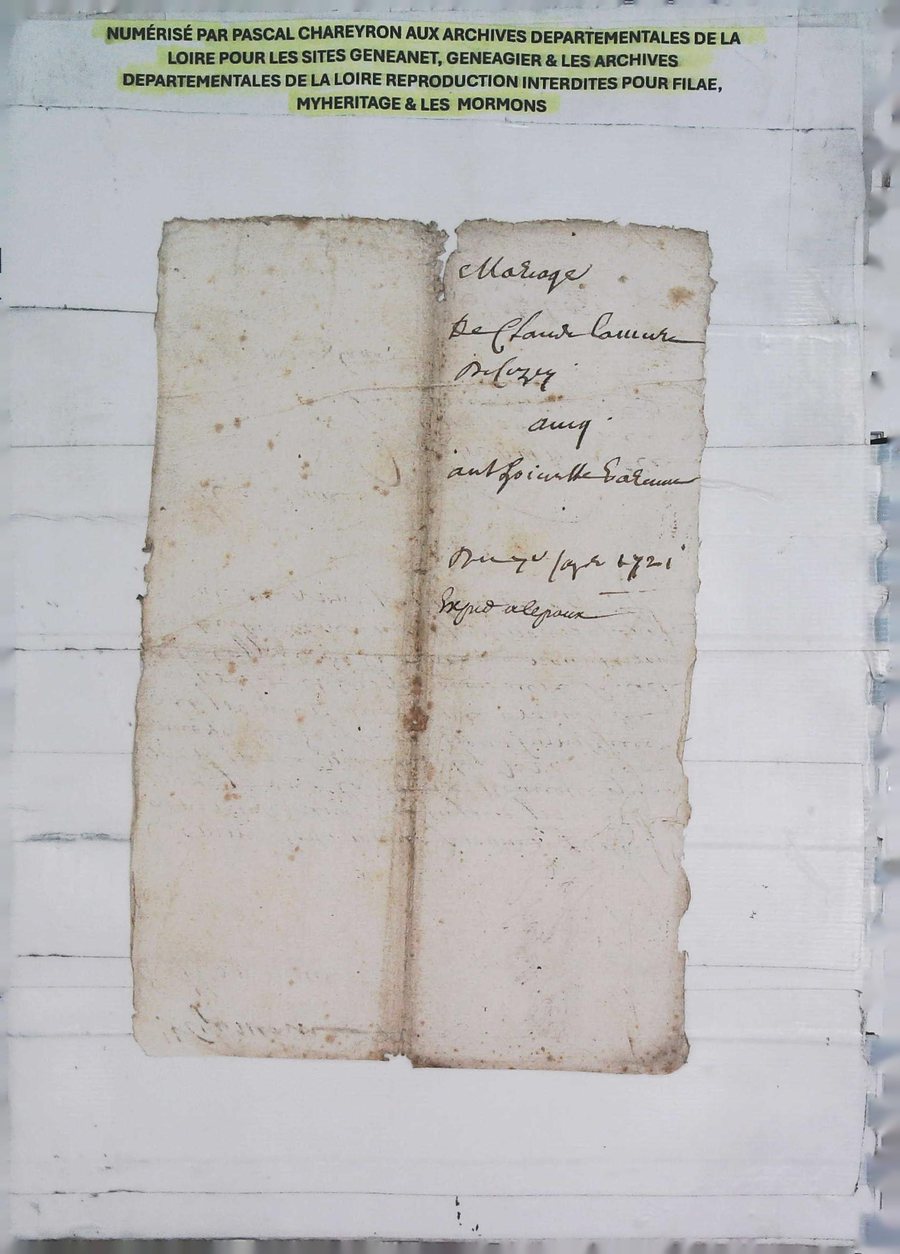 NUMÉRISÉ PAR PASCAL CHAREYRON AUX ARCHIVES DEPARTEMENTALES DE LA
LOIRE POUR LES SITES GENEANET, GENEAGIER & LES ARCHIVES
DEPARTEMENTALES DE LA LOIRE REPRODUCTION INTERDITES POUR FILAE,
MYHERITAGE & LES MORMONS
Mariage
De Claude Lamure
avecq
anthoinette
1721
Exped a lepoux